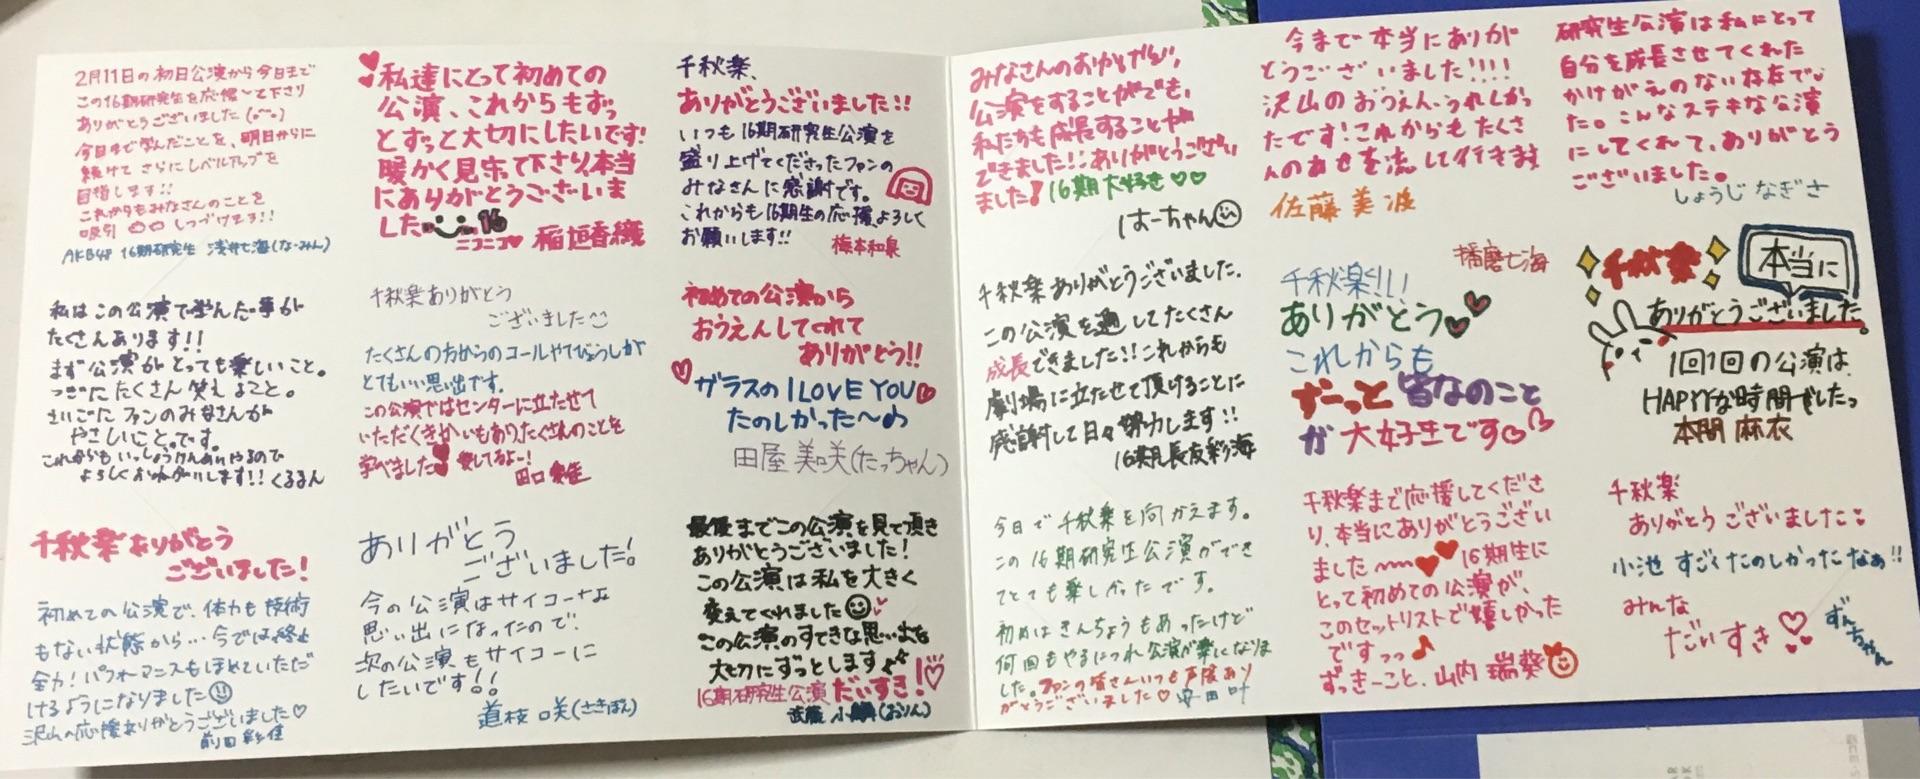 2月11日の初日公演から今日まで
この16期研究生を応援して下さり
ありがとうございました(^^)
今日まで学んだことを、明日からに
続けて さらにレベルアップを
目指します!!
これからもみなさんのことを
吸引 しつづけます!!
AKB48 16期研究生 浅井七海(なーみん)
私達にとって初めての
公演、これからもずっ
とずっと大切にしたいです!
暖かく見守って下さり、本当
にありがとうございま
した 16
ニコニコ 稲垣香織
千秋楽、
ありがとうございました!!
いつも16期研究生公演を
盛り上げてくださったファンの
みなさんに感謝です。
これからも16期生の応援、よろしく
お願いします!!
梅本和泉
私はこの公演で学んだ事が
たくさんあります!!
まず公演がとっても楽しいこと。
つぎにたくさん笑えること。
さいごに ファンのみなさんが
やさしいことっです。
これからもいっしょうけんめいやるので
よろしくおねがいします!! くるるん
千秋楽ありがとう
ございました
たくさんの方からのコールやてびょうしが
とてもいい思い出です。
この公演ではセンターに立たせて
いただくきかいもあり、たくさんのことを
学べました 愛してるよー!
田口愛佳
初めての公演から
おうえんしてくれて
ありがとう!!
ガラスのI LOVE YOU
たのしかった〜♪
田屋美咲(たっちゃん)
千秋楽ありがとう
ございました!
初めての公演で、体力も技術
もない状態から…今では、終始
全力!パフォーマンスもほめていただ
けるようになりました
沢山の応援ありがとうございました♡
前田彩佳
ありがとう
ございました!
今の公演はサイコーなな
思い出になったので、
次の公演もサイコーに
したいです!!
道枝咲(さきぽん)
最後までこの公演を見て頂き
ありがとうございました!
この公演は私を大きく
変えてくれました
この公演のすてきな思い出を
大切にずっとします♪
16期研究生公演だいすき!♡
武藤小麟(おりん)
みなさんのおかげで、
公演をすることができ、
私たちも成長することが
できました!!ありがとうござい
ました! 16期大好き♡♡
はーちゃん
今まで本当にありが
とうございました!!!!
沢山のおうえん、うれしかっ
たです!これからもたくさ
んのあせを流して行きます
佐藤美波
研究生公演は私にとって
自分を成長させてくれた
かけがえのない存在でし
た。こんなステキな公演
にしてくれて、ありがとう
ございました。
しょうじ なぎさ
千秋楽ありがとうございました。
この公演を通してたくさん
成長できました!!これからも
劇場に立たせて頂けることに
感謝して日々努力します!!
16期長友彩海
播磨七海
千秋楽!!!
ありがとう♥♥
これからも
ずーっと 皆なのこと
が 大好きです♡♡
千秋楽
本当に
ありがとうございました。
1回1回の公演は、
HAPPYな時間でしたっ
本間麻衣
今日で千秋楽を向かえます。
この16期研究生公演ができ
てとても楽しかったです。
初めはきんちょうもあったけど
何回もやるにつれ公演が楽しくなりま
した。ファンの皆さんいつも声援あり
がとうございました♡ 安田叶
千秋楽まで応援してくださ
り、本当にありがとうござい
ました ♥♥ 16期生に
とって初めての公演が、
このセットリストで嬉しかった
ですっっ♪
ずっきーこと、山内瑞葵
千秋楽
ありがとうございました
小池 すごくたのしかったなぁ!!
みんな
だいすき♡
ずんちゃん